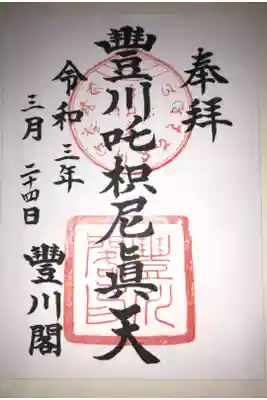 奉拝
豐川吒枳尼眞天
令和三年
三月二十四日
豐川閣